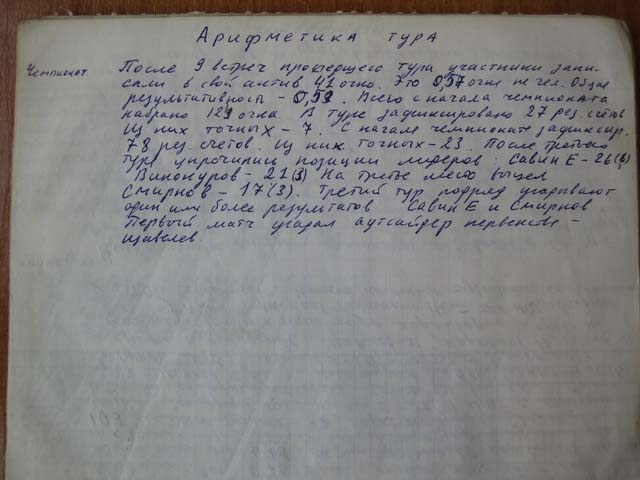 Арифметика тура
Чемпионат
После 9 встреч прошедшего тура участники запи-
сали в свой актив 41 очко. Это 0,57 очка на чел. Общая
результативность - 0,59. Всего с начала чемпионата
набрано 129 очка В туре зафиксировано 27 рез. счётов
Из них точных - 7. С начала чемпионата зафиксир.
78 рез. счётов. Из них точных - 23. После третьего
тура упрочили позиции лидеров: Савин Е - 26
Винокуров - 21(3) На третье место вышел
Смирнов - 17(3). Третий тур подряд угадывают
один или более результатов Савин Е и Смирнов
Первый матч угадал аутсайдер первенства -
Щавелев